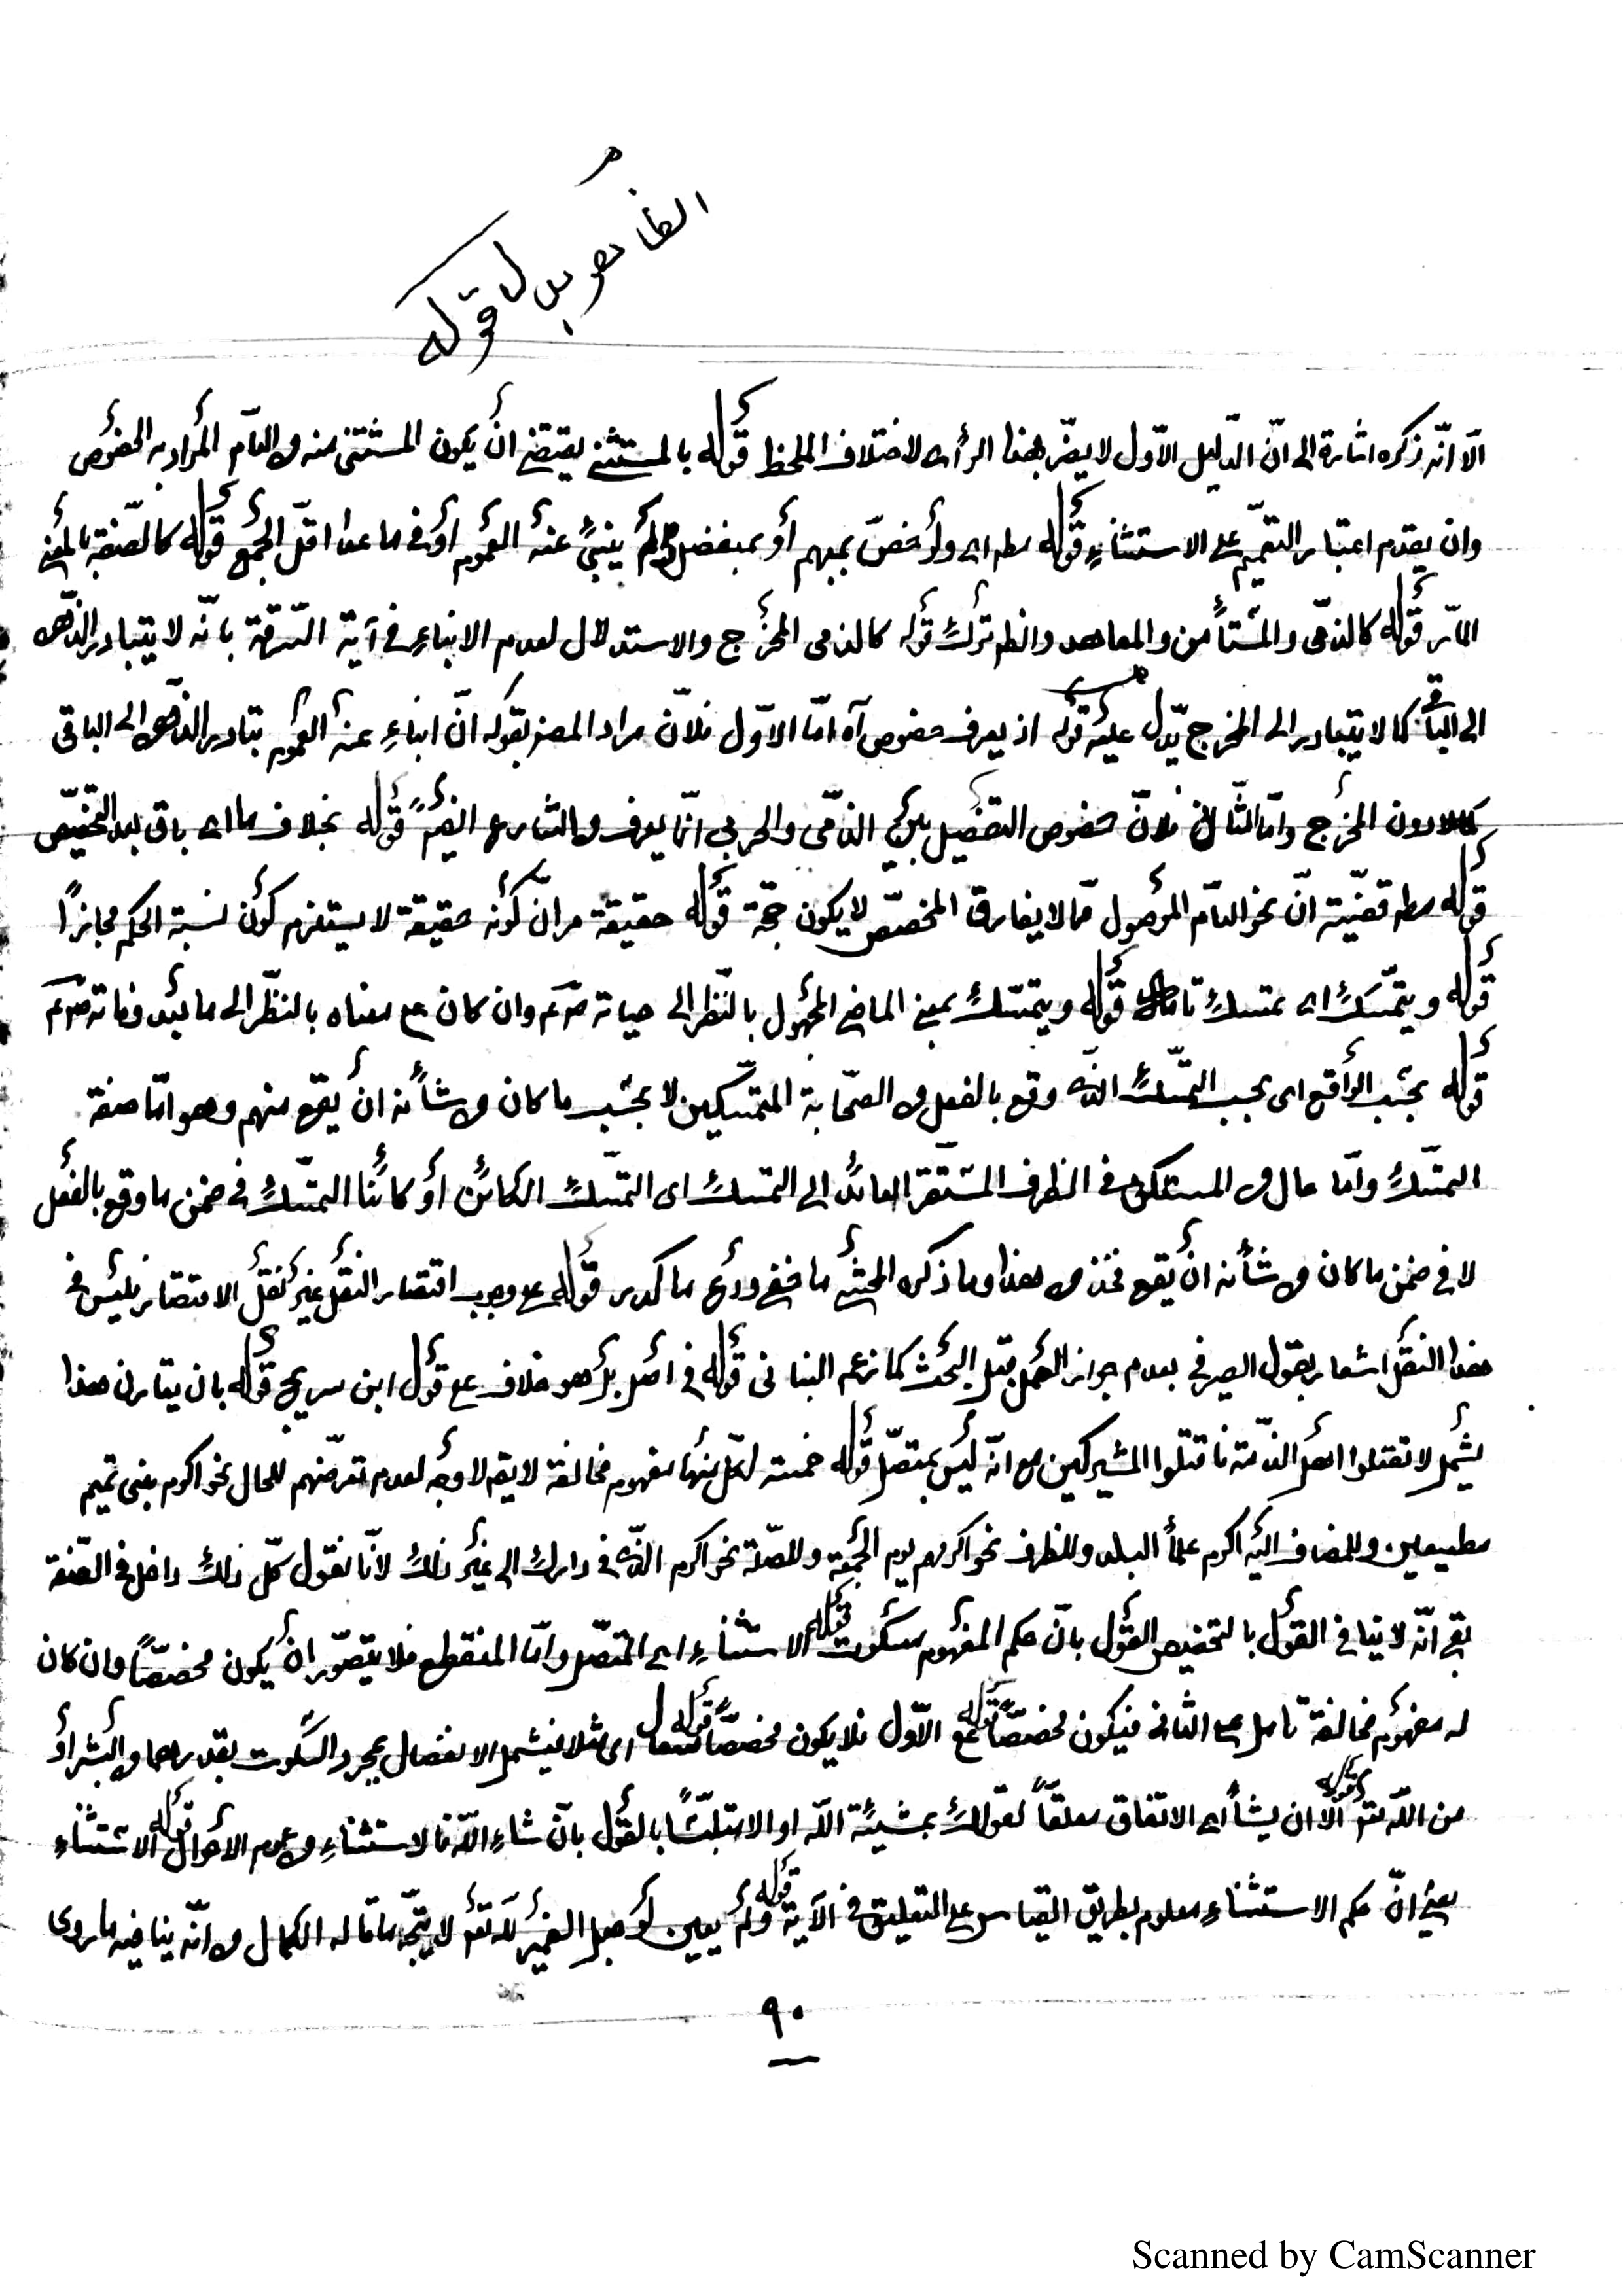 الظاهر بل قوله
الّا انّه ذكره اشارة الى انّ الدّليل الاوّل لا يضرّ بهذا الرأى لاختلاف الملحظ قوله بالمستثنى يقتضى ان يكون المستثنى منه من العامّ المراد به الخصوص
وان يقدم اعتبار التعميم على الاستثناء قوله مطه اى ولو خصّ بمبهم أو بمنفصل ولم ينبئ عنه العموم او فى ما عدا اقلّ الجمع قوله كالصّفة بالمعنى
المارّ قوله كالذمّى والمستأمن والمعاهد والظم ترك قوله كالذمى المخرج والاستدلال لعدم الانباء فى آية السّرقة بانّه لا يتبادر الذّهن
الى الباقى كما لا يتبادر الى المخرج يدّل عليه قوله اذ يعرف خصوص آه امّا الاوّل فلانّ مراد المصنف بقوله انّ انباء عنه العموم يتبادر الذّهن الى الباقى
دون المخرج وامّا الثّانى فلانّ خصوص التفصيل بين الذمّى والحربى انّما يعرف من الشارع ايضًا قوله بخلاف ما اى باق بعد التخصيص
قوله مطه قضيّة انّ نحو العامّ الموصول ممّا لا يفارق المخصّص لا يكون حجّة قوله حقيقة مر انّ كونه حقيقة لا يستلزم كون نسبة الحكم مجازًا
قوله ويتمسّك اى تمسك قوله ويتمسّك بمعنى الماضى المجهول بالنّظر الى حياته صّ‌م وان كان على معناه بالنظر الى ما بعد وفاته صّ‌م
قوله بحسب الواقع اى بحسب التمسّك الذّى وقع بالفعل من الصّحابة المتمسّكين لا بحسب ما كان من شأنه ان يقع منهم وهو امّا صفة
التمسّك وامّا حال من المستكن فى الظرف المستقرّ العائد الى التمسك اى التمسّك الكائن أو كائنا التمسّك فى ضمن ما وقع بالفعل
لا فى ضمن ما كان من شأنه ان يقع فخذ من هذا وما ذكره المحشّى ما صفى ودع ما كدر قوله على وجوب اقتصار النقل غير نقل الاقتصار فليس فى
هذا النقل اشعار بقول الصيرفى بعدم جواز العمل قبل البحث كما زعم البنانى قوله فى اصل بل هو خلاف على قول ابن سريج قوله بان يقارن هذا
يشمل لا تقتلوا اهل الذمّة فاقتلوا المشركين مع انّه ليس بمتصّل قوله خمسة لكلّ منها مفهوم مخالفة لا يقم لا وجه لعدم تعرّضهم للحال نحو اكرم بنى تميم
مطيعين وللمضاف اليه اكرم علماء البلد وللظرف نحو اكرمهم يوم الجمعة وللصّلة نحو اكرم الذّى فى دارك الى غير ذلك لأنّا نقول كلّ ذلك داخل فى الصّفة
بقى انّه لا ينافى القول بالتخصيص القول بانّ حكم المفهوم سكوت قوله الاستثناء اى المتصّل وامّا المنقطع فلا يتصّور ان يكون مخصصًّا وان كان
له مفهوم مخالفة تامل على الثانى فيكون مخصصًّا قوله مع الاوّل فلا يكون مخصصًّا قوله اى مثلا فيشمل الانفصال بمجرد السّكوت بقدرهما من البشر أو
من اللّه تعم قوله الّا ان يشأ اى الاتفاق معلقًا لقولك بمشيئة اللّه او الا متلبّسًا بالقول بأن شاء اللّه فالاستثناء من عموم الاحوال قوله الاستثناء
يعنى انّ حكم الاستثناء معلوم بطريق القياس على التعليق فى الآية قوله ولم يعين لو جعل الضمير للّه تعم لا يتّجه ما قاله الكمال من انّه ينافيه ما روى
٩٠
Scanned by CamScanner